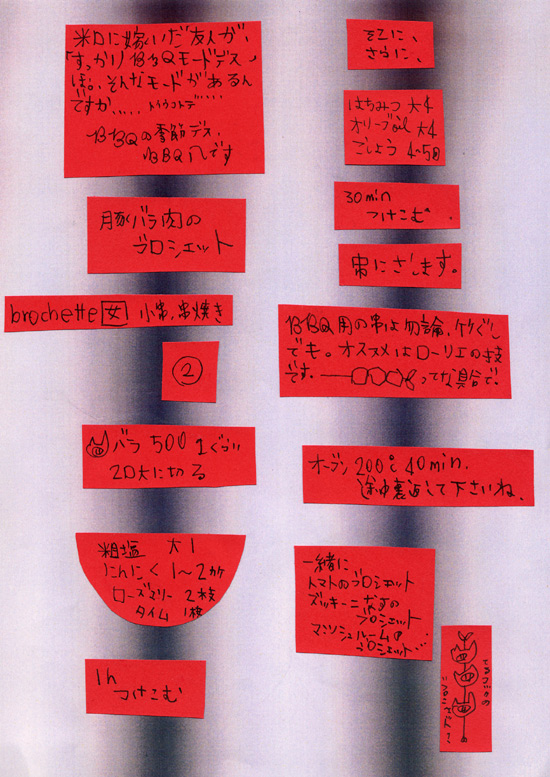 米口に嫁いだ友人が、
「すっかりBBQモードデス」
ぽ。そんなモードがあるん
ですか…… トイウコトデ……
BBQの季節デス。
BBQ八です
豚バラ肉の
ブロシェット
brochette 女 小串、串焼き
②
バラ 500gぐらい
2口大に切る
粗塩 大1
にんにく 1〜2カケ
ローズマリー 2枝
タイム 1枝
1h
つけこむ
更に、
さらに、
はちみつ 大4
オリーブoil 大4
こしょう 4〜5回
30min
つけこむ。
串にさします。
BBQ用の串は勿論、竹ぐし
でも。オススメはローリエの枝
です。 ってな具合で。
オーブン 200℃ 40min.
途中裏返して下さいね。
一緒に
トマトのブロシェット
ズッキーニなすの
ブロシェット
マッシュルームの
ブロシェット